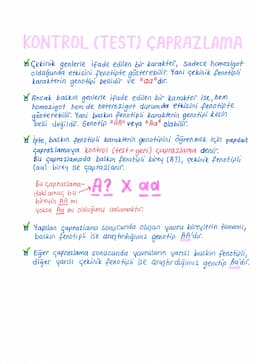 KONTROL (TEST) ÇAPRAZLAMA
Çekinik genlerle ifade edilen bir karakter, sadece homozigot
olduğunda etkisini fenotipte gösterebilir. Yani çekinik fenotipli
karakterin genotipi bellidir ve "aa"dır.
Ancak baskın genlerle ifade edilen bir karakter ise, hem
homozigot hem de heterozigot durumda etkisini fenotipte
gösterebilir. Yani baskın fenotipli karakterin genotipi kesin
belli değildir. Genotip "AA" veya "Aa" olabilir.
İşte, baskın fenotipli karakterin genotipini öğrenmek için yapılan
çaprazlamaya kontrol (test=geri) çaprazlama denir.
Bu çaprazlamada baskın fenotipli birey (A?), çekinik fenotipli
(aa) birey ile çaprazlanır.
Bu çaprazlama-
daki amaç bu
bireyin AA mı
yoksa Aa mı olduğunu anlamaktır.
A? X aa
Yapılan çaprazlama sonucunda oluşan yavru bireylerin tamamı,
baskın fenotipli ise araştırdığımız genotip AA'dır.
Eğer çaprazlama sonucunda yavruların yarısı baskın fenotipli,
diğer yarısı çekinik fenotipli ise araştırdığımız genotip Aa'dır.